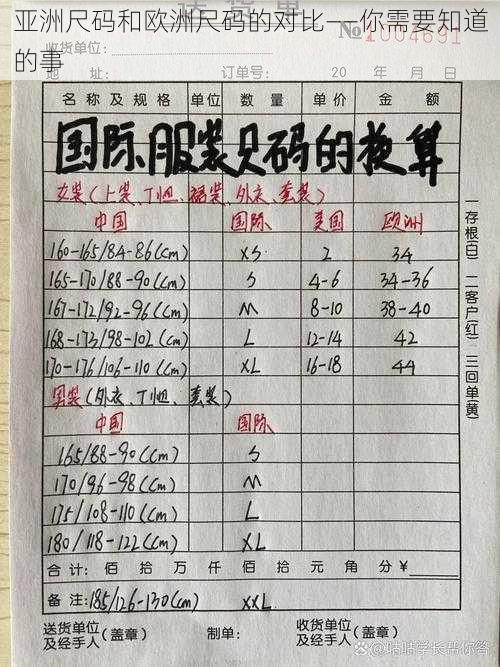 亚洲尺码和欧洲尺码的对比——你需要知道
的事
送 货 单
No 1004691
地址: 订单号: 20 年 月 日
名称及规格 单位 数量 单价 金额
国际服装尺码的换算
女装(上装、T恤、裙装、外衣、套装)
中国 国际 美国 欧洲
160-165/84-86(cm) XS 2 34
165-170/88-90(cm) S 4-6 34-36
167-172/92-96(cm) M 8-10 38-40
168-173/98-102(cm) L 12-14 42
170-176/106-110(cm) XL 16-18 44
男装(外衣、T恤、套装)
中国 国际
165/88-90(cm) S
170/96-98(cm) M
175/108-110(cm) L
180/118-122(cm) XL
合计: 佰 拾 万 仟 佰 拾 元 角 分¥
备注:185/126-130(cm) XXL
送货单位及经手人(盖章) 制单: 收货单位及经手人(盖章)
一存根(白) 二客户(红) 三回单(黄)
@咕咕学长帮你答